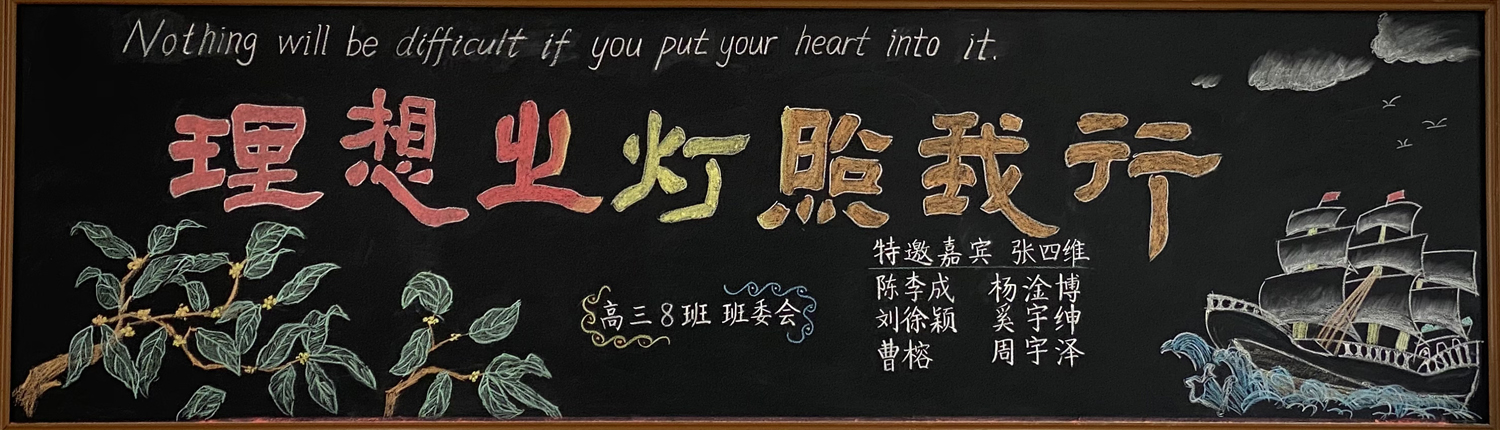 Nothing will be difficult if you put your heart into it.
理想之灯照我行
特邀嘉宾 张四维
高三8班 班委会
陈李成 杨淦博
刘徐颖 奚宇绅
曹榕 周宇泽